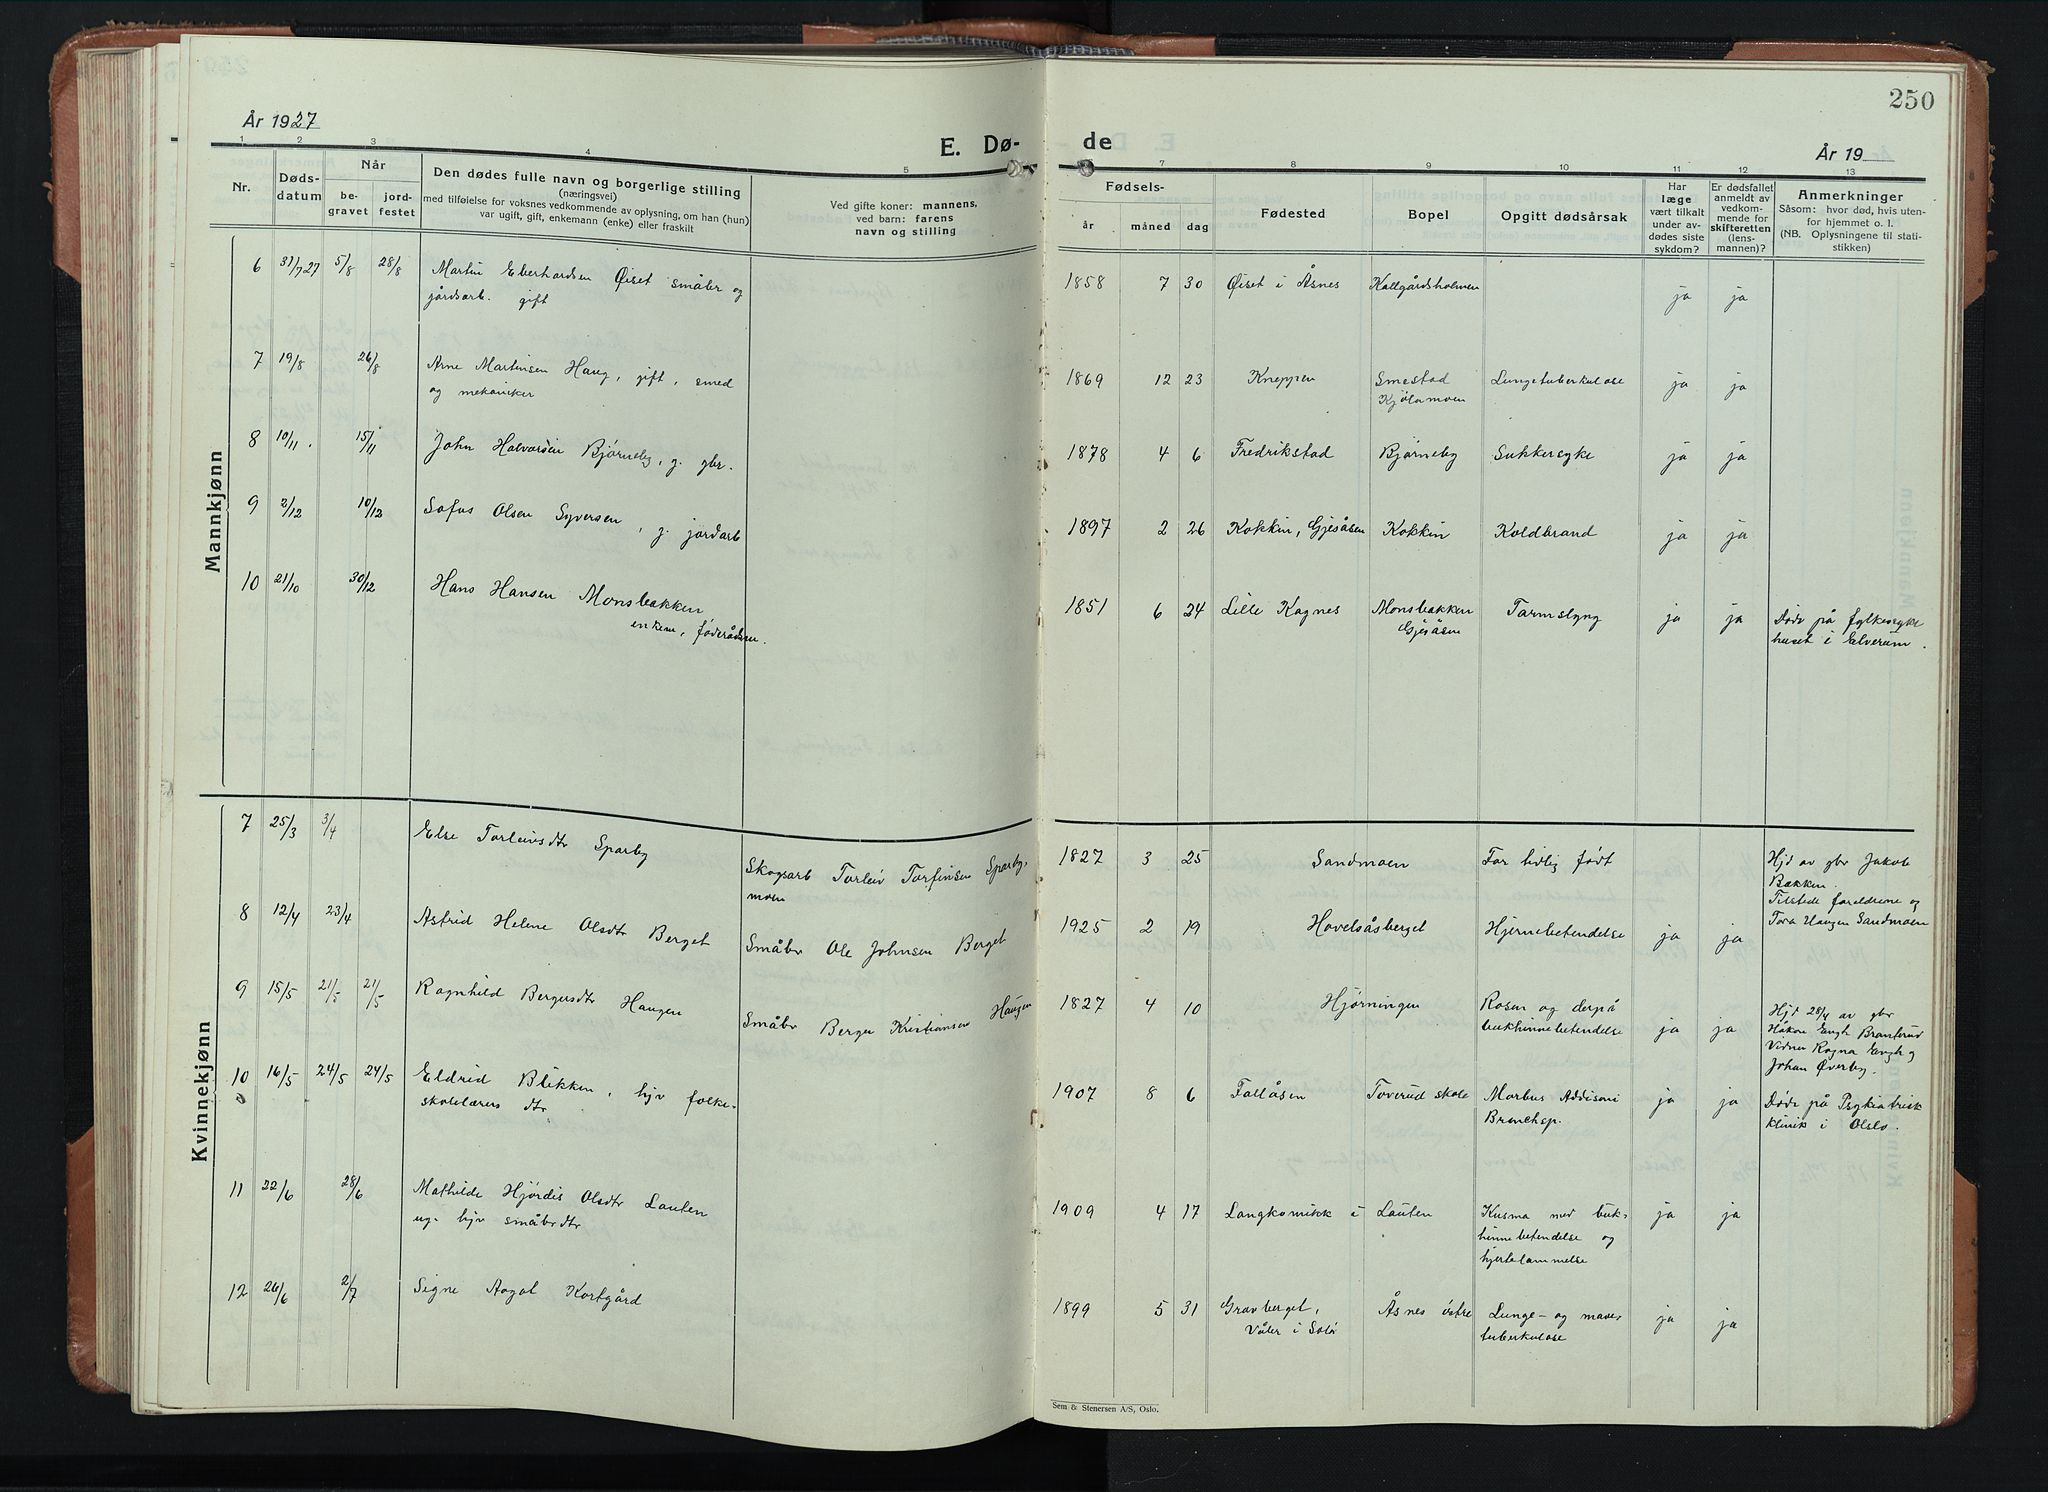 250
År 1927
E. Dø-
de
År 19
1 2 3 4 5 7 8 9 10 11 12 13
Nr.
Døds-
datum
Når
be-
gravet
jord-
festet
Den dødes fulle navn og borgerlige stilling
(næringsvei)
med tilføielse for voksnes vedkommende av oplysning, om han (hun)
var ugift, gift, enkemann (enke) eller fraskilt
Ved gifte koner: mannens,
ved barn: farens
navn og stilling
Fødsels-
år måned dag
Fødested
Bopel
Opgitt dødsårsak
Har
læge
vært tilkalt
under av-
dødes siste
sykdom?
Er dødsfallet
anmeldt av
vedkom-
mende for
skifteretten
(lens-
mannen)?
Anmerkninger
Såsom: hvor død, hvis uten-
for hjemmet o. l.
(NB. Oplysningene til stati-
stikken)
Mannkjønn
6 31/7 27 5/8 28/8 Martin Eberhardsen Øiset småbr og
gårdsarb. gift
1858 7 30 Øiset i Åsnes Kallgårdsholmen ja ja
7 19/8 26/8 Arne Martinsen Haug, gift, smed
og mekaniker
1869 12 23 Kneppen Smestad Lungetuberkulose ja ja
Kjølamoen
8 10/11. 15/11 John Halvorsen Bjørneby, g. gbr.
1878 4 6 Fredrikstad Bjørneby Sukkersyke ja ja
9 2/12 10/12 Sofus Olsen Syversen, g. jordarb
1897 2 26 Kokkin, Gjesåsen Kokkin Koldbrand ja ja
10 21/10 30/12 Hans Hansen Monsbakken
enkem, føderådsm.
1851 6 24 Lille Kagnes Monsbakken Tarmslyng ja ja Døde på fylkessyke
Gjesåsen huset i Elverum.
Kvinnekjønn
7 25/3 3/4 Else Torleivsdtr Sparby
Skogsarb Torleiv Torfinsen Sparby-
moen
1827 3 25 Sandmoen For tidlig født Hjd av gbr Jakob
Bakken.
Tilstede foreldrene og
Tora Haugen Sandmoen
8 12/4 23/4 Astrid Helene Olsdtr Berget
Småbr Ole Johnsen Berget
1925 2 19 Hovelsåsberget Hjernebetendelse ja ja
9 15/5 21/5 21/5 Ragnhild Bergersdtr Haugen
Småbr Berger Kristiansen Haugen
1827 4 10 Hjørningen Rosen og derpå
bukhinnebetendelse ja ja
Hjd 28/4 av gbr
Håkon Engh Branterud
Vidner Ragna Engh og
Johan Øverby.
10 16/5 24/5 24/5 Eldrid Blikken, hjv folke-
skolelærers dtr
1907 8 6 Fallåsen Toverud skole Morbus Addisoni ja ja Døde på Psykiatrisk
Bronchsp. klinik i Oslo.
11 22/6 28/6 Mathilde Hjørdis Olsdtr Lauten
ug. hjv småbrdtr
1909 4 17 Langkomikk i Lauten Kusma med buk- ja ja
hinnebetendelse og
hjertelammelse
12 26/6 2/7 Signe Aagot Kortgård
1899 5 31 Gravberget, Åsnes østre Lunge- og mave- ja ja
Våler i Solør tuberkulose
Sem & Stenersen A/S, Oslo.